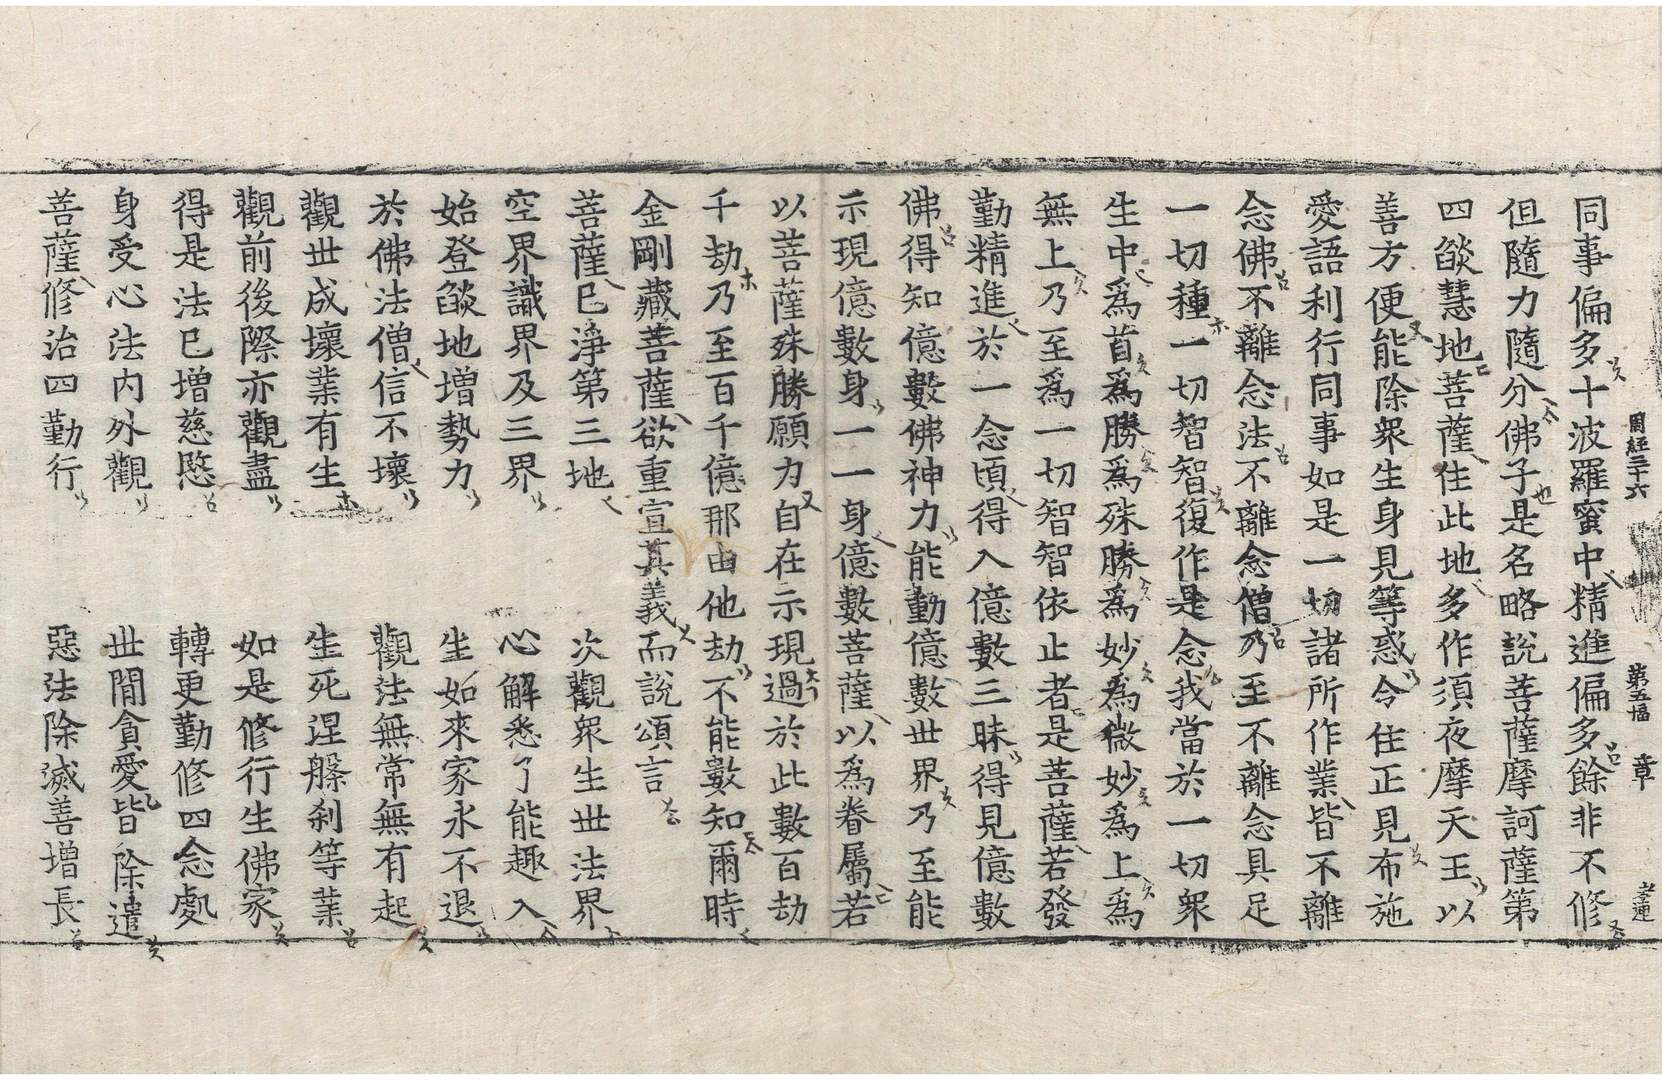 周經三十六 第五幅 章 孝運
同事偏多十波羅蜜中精進偏多餘非不修
但隨力隨分佛子是名略說菩薩摩訶薩第
四焰慧地菩薩住此地多作須夜摩天王以
善方便能除衆生身見等惑令住正見布施
愛語利行同事如是一切諸所作業皆不離
念佛不離念法不離念僧乃至不離念具足
一切種一切智智復作是念我當於一切衆
生中爲首爲勝爲殊勝爲妙爲微妙爲上爲
無上乃至爲一切智智依止者是菩薩若發
勤精進於一念頃得入億數三昧得見億數
佛得知億數佛神力能動億數世界乃至能
示現億數身一一身億數菩薩以爲眷屬若
以菩薩殊勝願力自在示現過於此數百劫
千劫乃至百千億那由他劫不能數知爾時
金剛藏菩薩欲重宣其義而說頌言
菩薩已淨第三地 次觀衆生世法界
空界識界及三界 心解悉了能趣入
始登焰地增勢力 生如來家永不退
於佛法僧信不壞 觀法無常無有起
觀世成壞業有生 生死涅槃刹等業
觀前後際亦觀盡 如是修行生佛家
得是法已增慈愍 轉更勤修四念處
身受心法內外觀 世間貪愛皆除遣
菩薩修治四勤行 惡法除滅善增長